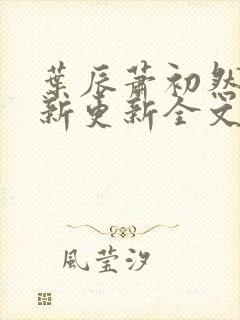 葉辰蕭初然
新更新全文
風莹汐